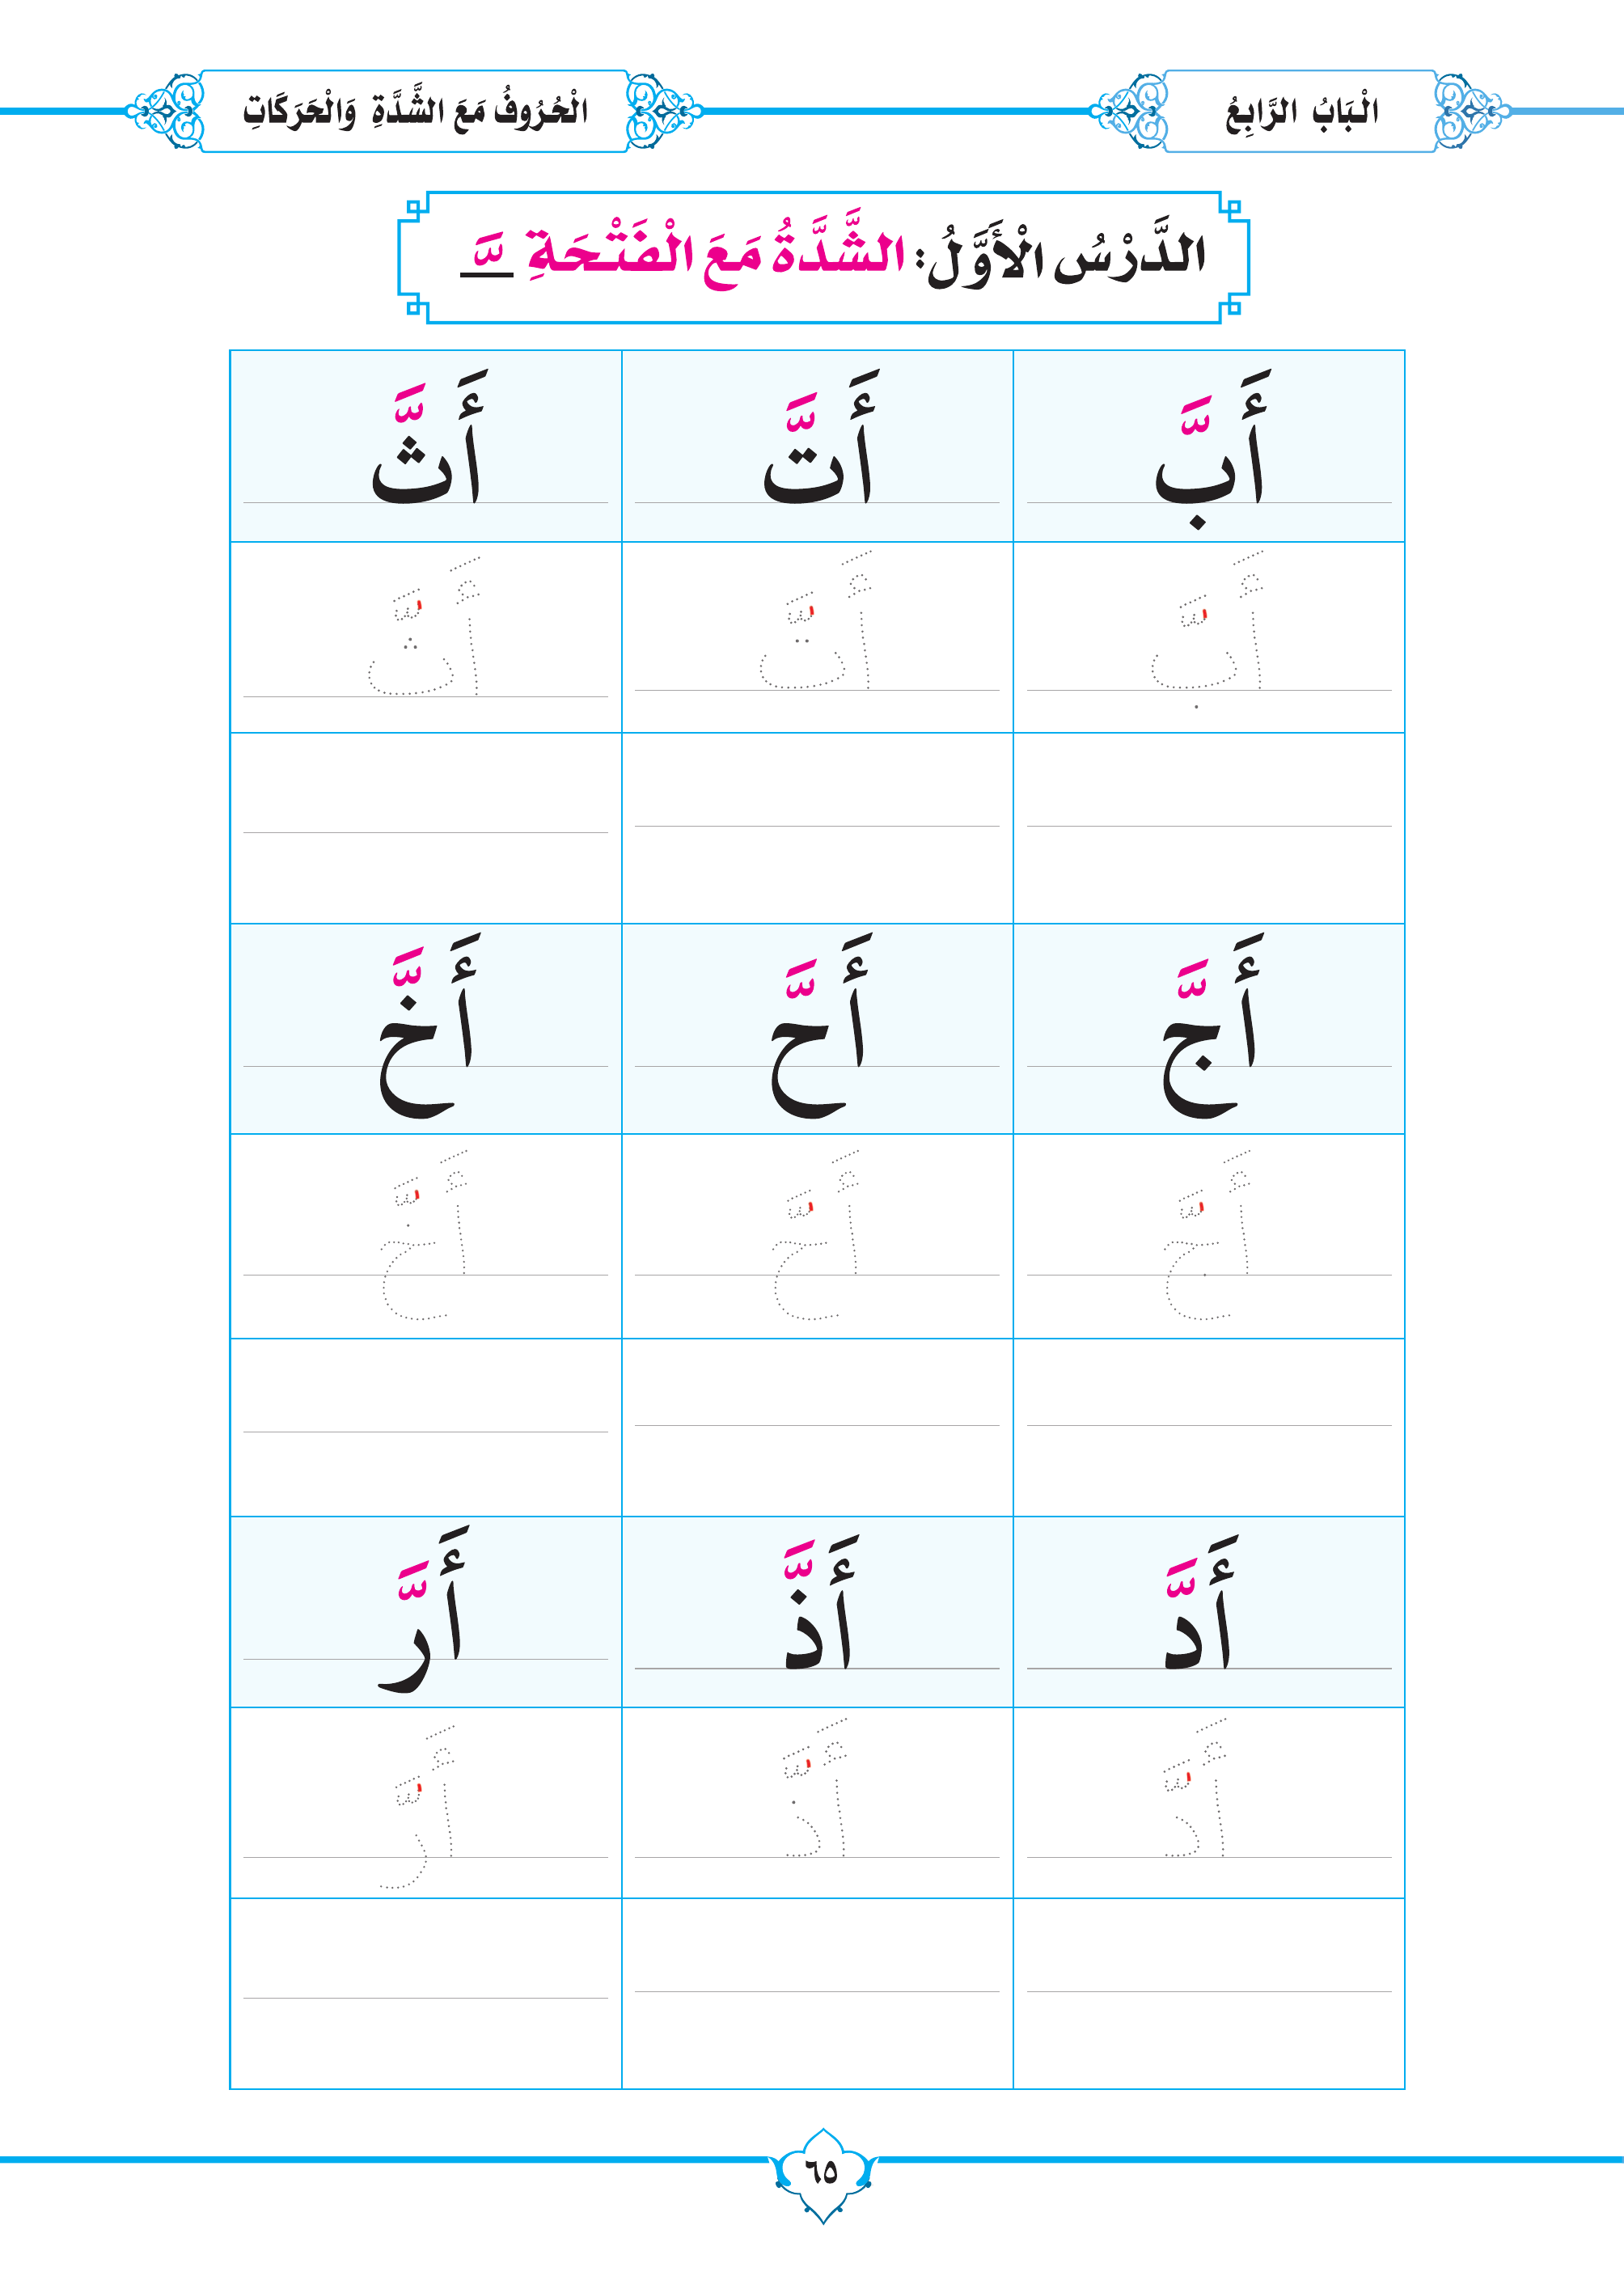 الْبَابُ الرَّابِعُ
الْحُرُوفُ مَعَ الشَّدَّةِ وَالْحَرَكَاتِ
الدَّرْسُ الْأَوَّلُ: الشَّدَّةُ مَعَ الْفَتْحَةِ ـَّ
أَبَّ أَتَّ أَثَّ
أَبَّ أَتَّ أَثَّ
أَجَّ أَحَّ أَخَّ
أَجَّ أَحَّ أَخَّ
أَدَّ أَذَّ أَرَّ
أَدَّ أَذَّ أَرَّ
٦٥